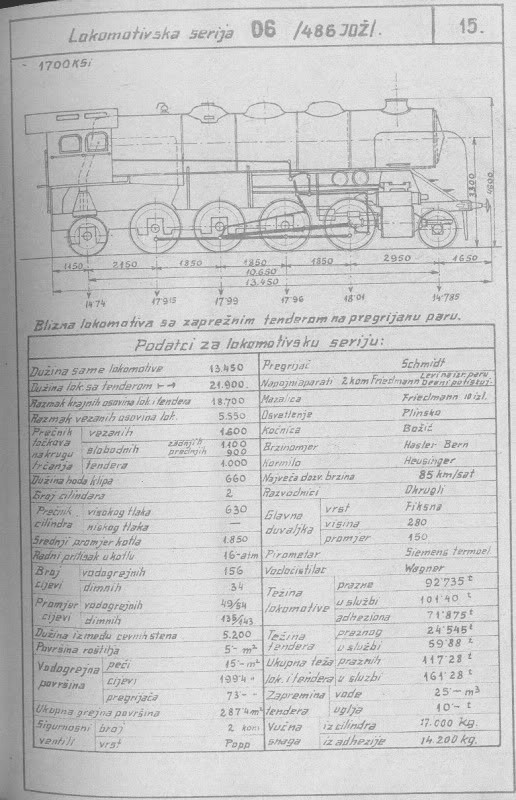 Lokomotivska serija 06 /486 JDŽ/.
15.
1700 KSi
3300
4200
1150 2150 1850 1850 1850 2950 1650
10.650
13.450
14.74 17.915 17.99 17.96 18.01 14.785
Blizna lokomotiva sa zaprežnim tenderom na pregrijanu paru.
Podatci za lokomotivsku seriju:
Dužina same lokomotive 13.450
Dužina lok. sa tenderom 21.900.
Razmak krajnih osovina lok. i tendera 18.700
Razmak vezanih osovina lok. 5.550
Prečnik točkova na krugu trčanja
vezanih 1600
slobodnih zadnjih 1.100
prednjih 900
tendera 1.000
Dužina hoda klipa 660
Broj cilindara 2
Prečnik cilindra visokog tlaka 630
niskog tlaka —
Srednji promjer kotla 1.850
Radni pritisak u kotlu 16-atm
Broj cijevi vodogrejnih 156
dimnih 34
Promjer cijevi vodogrejnih 49/54
dimnih 135/143
Dužina između cevnih stena 5.200
Površina roštilja 5 - m²
Vodogrejna površina peći 15 - m²
cijevi 199'4 "
pregrijača 73 - "
Ukupna grejna površina 287'4 m²
Sigurnosni ventili broj 2 kom
vrst Popp
Pregrijač Schmidt
Napojni aparati 2 kom Friedmann
Mazalica Friedmann 10 izl.
Osvetlenje Plinsko
Kočnica Božić
Brzinomjer Hasler Bern
Kormilo Heusinger
Najveća dozv. brzina 85 km/sat
Razvodnici Okrugli
Glavna duvaljka vrst Fiksna
visina 280
promjer 150
Pirometar Siemens termoel
Vodočistilac Wagner
Težina lokomotive prazne 92'735 t
u službi 101'40 t
adheziona 71'875 t
Težina tendera praznog 24'545 t
u službi 59'88 t
Ukupna teža lok. i tendera praznih 117'28 t
u službi 161'28 t
Zapremina tendera vode 25 - m³
uglja 10 - t
Vučna snaga iz cilindra 17.000 kg.
iz adhezije 14.200 kg.